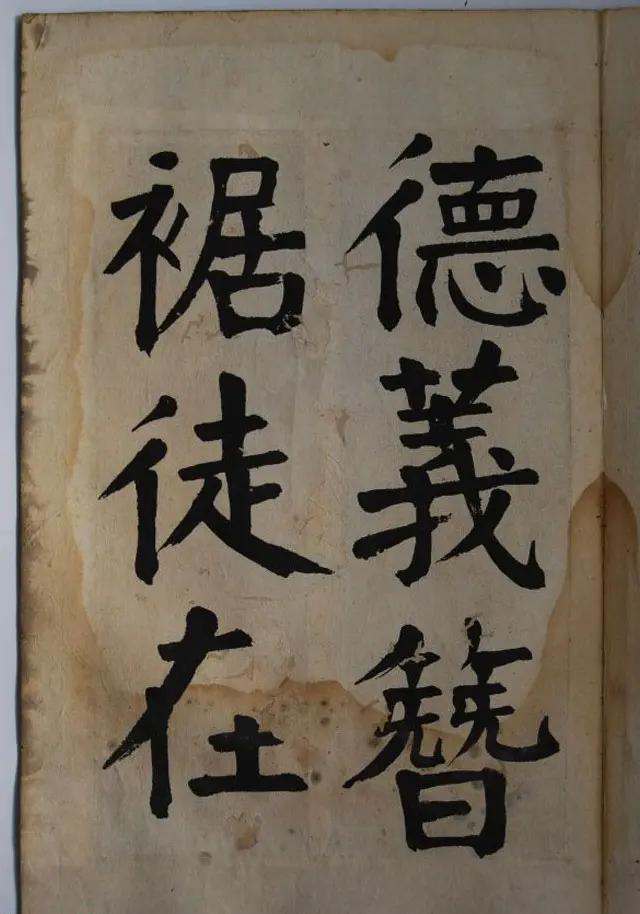 德義簪
裾徒在